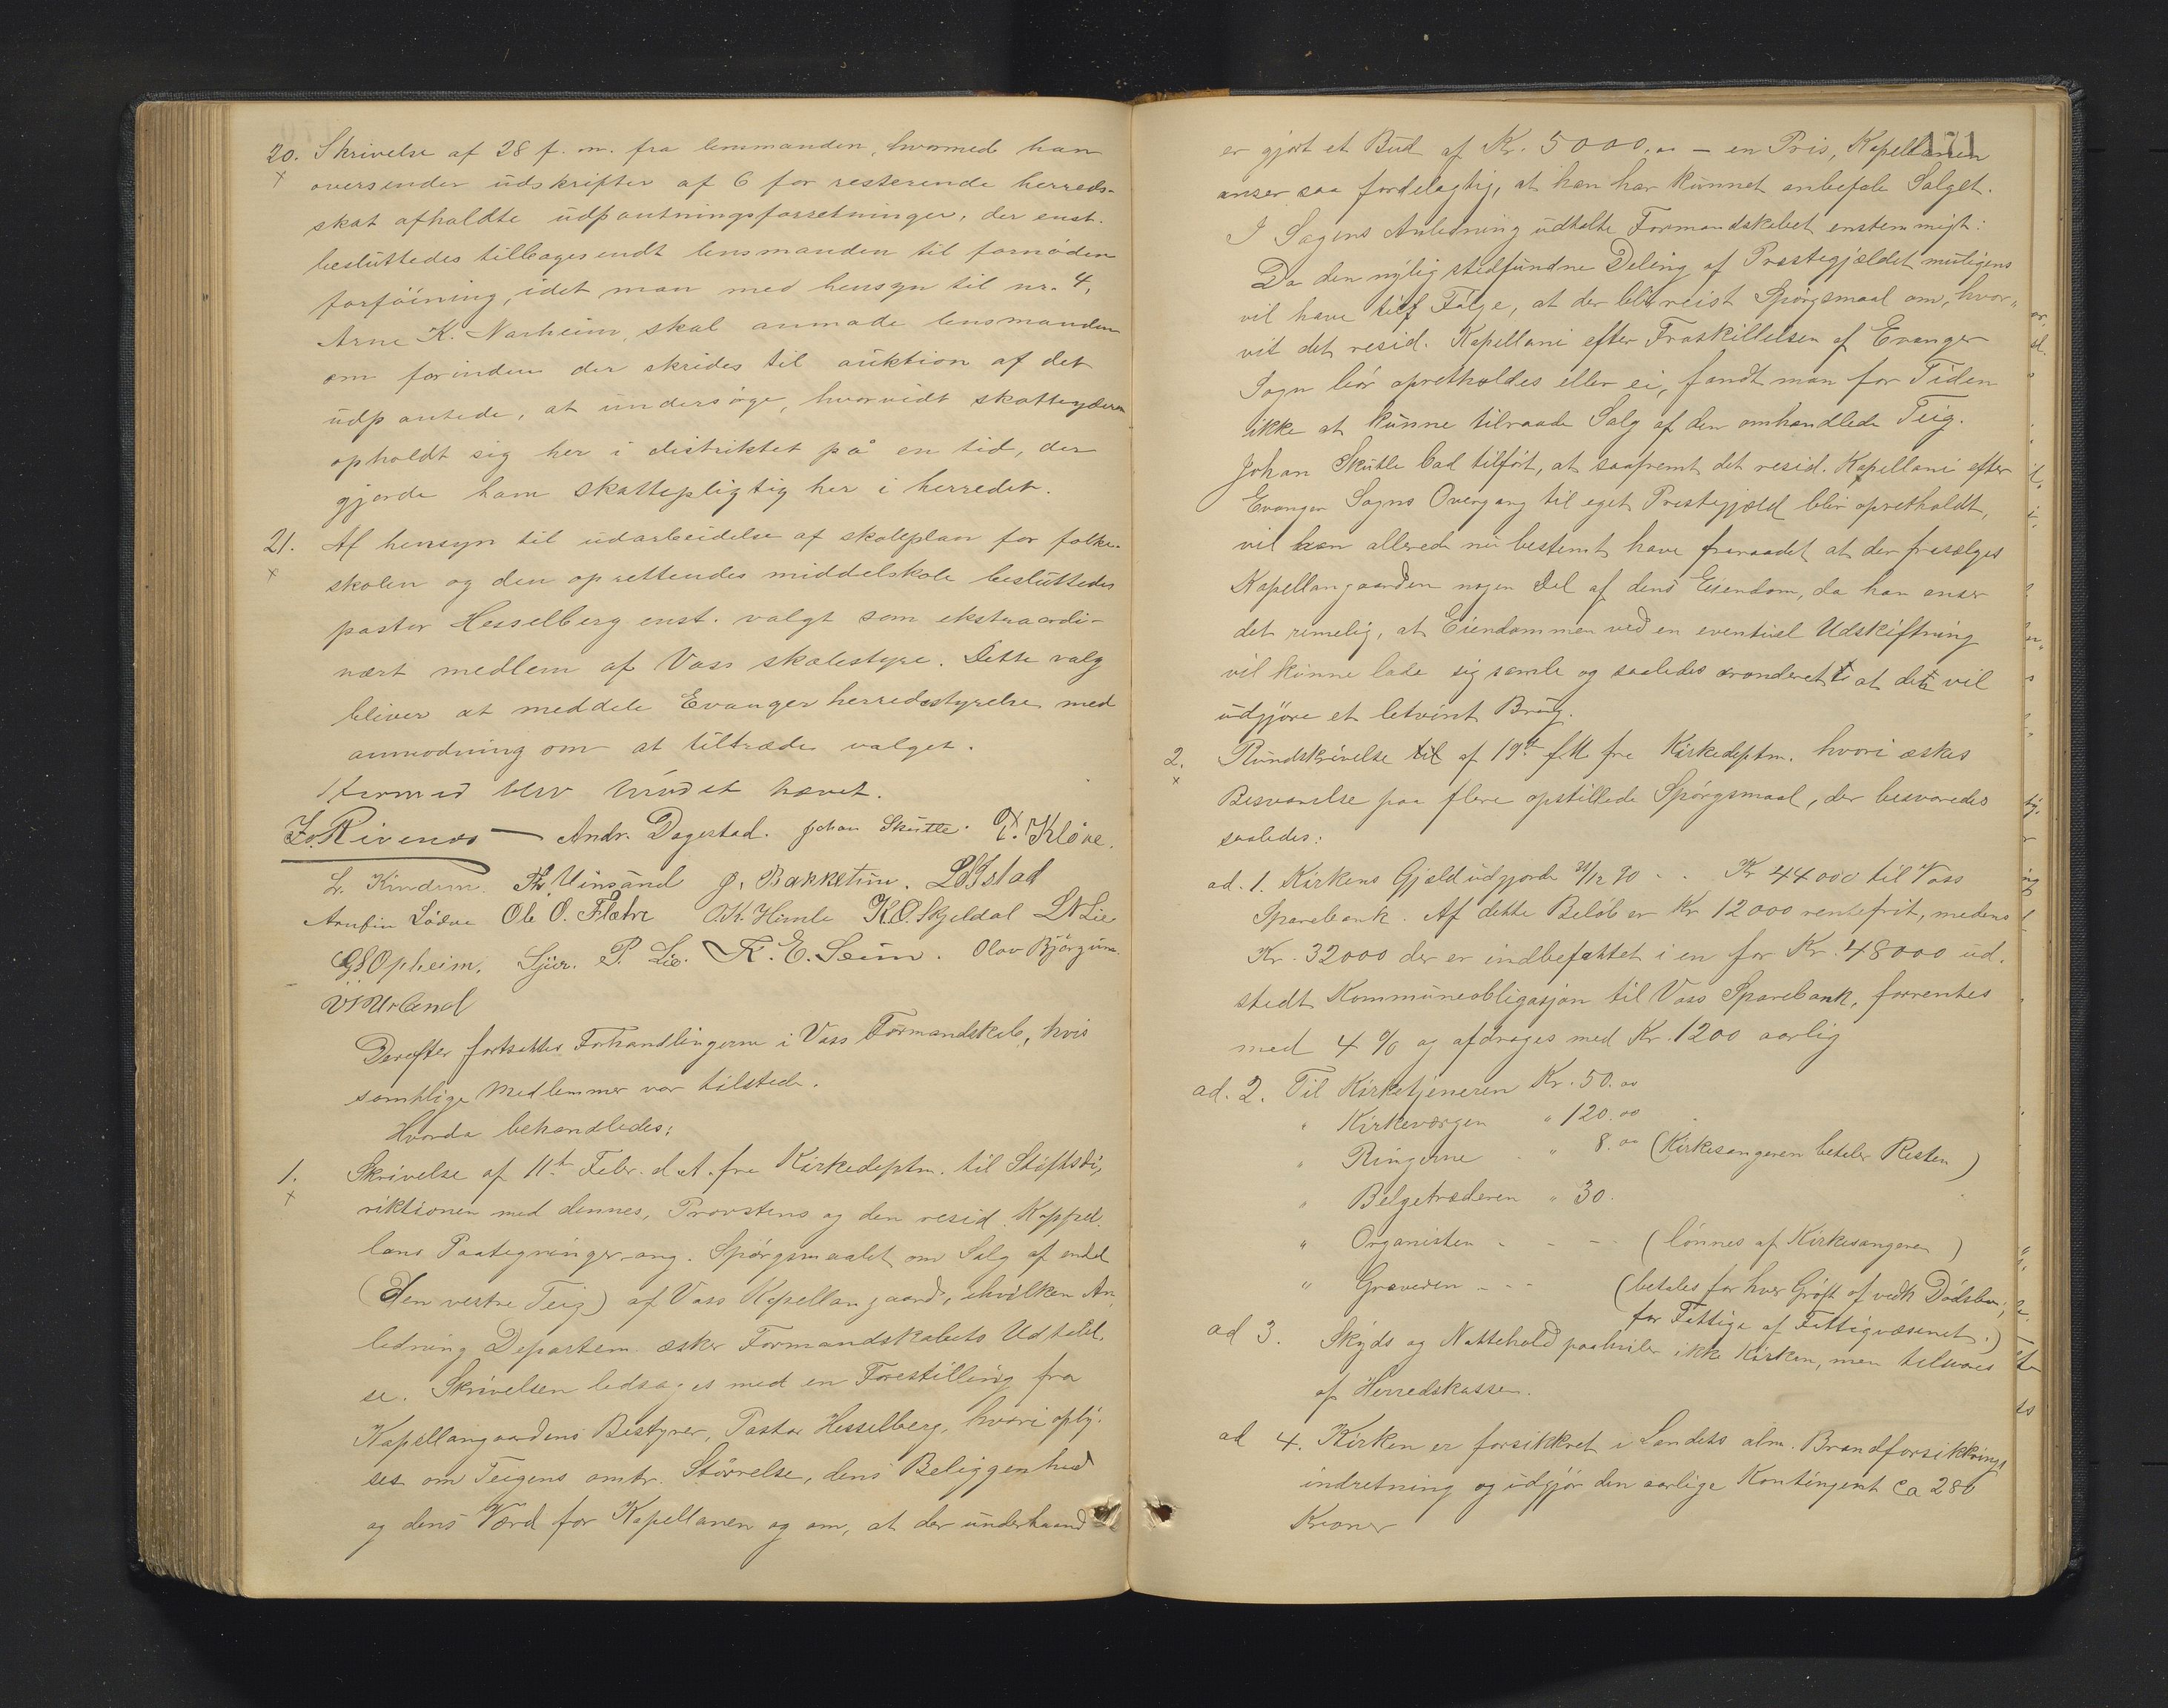 20. Skrivelse af 28 f. m. fra lensmanden, hvormed han
x oversender udskrifter af 6 for resterende herreds-
skat afholdte udpantningsforretninger, der enst.
besluttedes tilbagesendt lensmanden til fornøden
forføining, idet man med hensyn til nr. 4,
Arne K. Narheim, skal anmode lensmanden
om forinden der skrides til auktion af det
udpantede, at undersøge, hvorvidt skatteyderen
opholdt sig her i distriktet på en tid, der
gjorde ham skattepligtig her i herredet.
21. Af hensyn til udarbeidelse af skoleplan for folke-
x skolen og den oprettendes middelskole besluttedes
pastor Hesselberg enst. valgt som ekstraordi-
nært medlem af Voss skolestyre. Dette valg
bliver at meddele Evanger herredsstyrelse med
anmodning om at tiltræde valget.
Hermed blev mødet hævet.
Andr. Dagestad. Johan Skutle. T. Kløve.
L. Kindem. Th. Uinsand Ø. Bakketun. LBIstad
Arnfin Lødve Ole O. Flatre O.K. Himle K.O. Skjeldal LNLie
GSOpheim. Sjur. P. Lie. K. E. Seim. Olav Bjørgum.
Derefter fortsattes Forhandlingerne i Voss Formandskab, hvis
samtlige Medlemmer var tilstede.
Hvorda behandledes:
1. Skrivelse af 11te Febr. d. A. fra Kirkedeptm. til Stiftsdi-
x riktionen med dennes, Provstens og den resid. Kappel-
lans Paategninger ang. Spørgsmaalet om Salg af endel
(den vestre Teig) af Voss Kapellangaard, i hvilken An-
ledning Departem. æsker Formandskabets Udtalel-
se. Skrivelsen ledsages med en Forestilling fra
Kapellangaardens Bestyrer, Pastor Hesselberg, hvori oply-
ses om Teigens omtr. Størrelse, dens Beliggenhed
og dens Værd for Kapellanen og om, at der underhaand
171
er gjort et Bud af Kr. 5000,00 – en Pris, Kapellanen
anser saa fordelagtig, at han har kunnet anbefale Salget.
I Sagens Anledning udtalte Formandskabet enstemmigt:
Da den nylig stedfundne Deling af Præstegjældet muligens
vil have til Følge, at der blir reist Spørgsmaal om, hvor-
vit det resid. Kapellani efter Fraskillelsen af Evanger
Sogn bør opretholdes eller ei, fandt man for Tiden
ikke at kunne tilraade Salg af den omhandlede Teig.
Johan Skutle bad tilført, at saafremt det resid. Kapellani efter
Evanger Sogns Overgang til eget Prestegjæld blir opretholdt,
vil han allerede nu bestemt have fraraadet at der frasælges
Kapellangaarden nogen Del af dens Eiendom, da han anser
det rimelig, at Eiendommen ved en eventuel Udskiftning
vil kunne lade sig samle og saaledes aronderet at det vil
udgjøre et letvint Brug.
2. Rundskrivelse af 19de f.M. fra Kirkedeptm. hvori æskes
x Besvarelse paa flere opstillede Spørgsmaal, der besvaredes
saaledes:
ad. 1. Kirkens Gjæld udgjorde 31/12 90 - . Kr 44000 til Voss
Sparebank. Af dette Beløb er Kr 12000 rentefrit, medens
Kr. 32000 der er indbefattet i en for Kr. 48000 ud-
stedt Kommuneobligasjon til Voss Sparebank, forrentes
med 4 % og afdrages med Kr. 1200 aarlig
ad. 2. Til Kirketjeneren Kr. 50.00
" Kirkeværgen " 120.00
" Ringerne - " 8.00 (Kirkesangeren betaler Resten)
" Belgetræderen " 30.
" Organisten - - - - (lønnes af Kirkesangeren)
" Graveren - - - (betales for hver Grøft af vedk Dødsbo;
for Fattige af Fattigvæsenet.)
ad 3. Skyds og Nattehold paahviler ikke Kirken, men tilsvares
af Herredskassen.
ad 4. Kirken er forsikkret i Landets alm. Brandforsikkrings-
indretning og udgjør den aarlige Kontingent Ca 280
Kroner